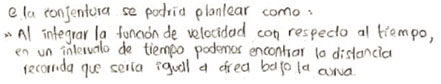 e la conjentura se podria plantear como:
"Al integrar la función de velocidad con respecto al tiempo,
en un intervalo de tiempo podemos encontrar la distancia
recorrida que seria igual a área bajo la curva.